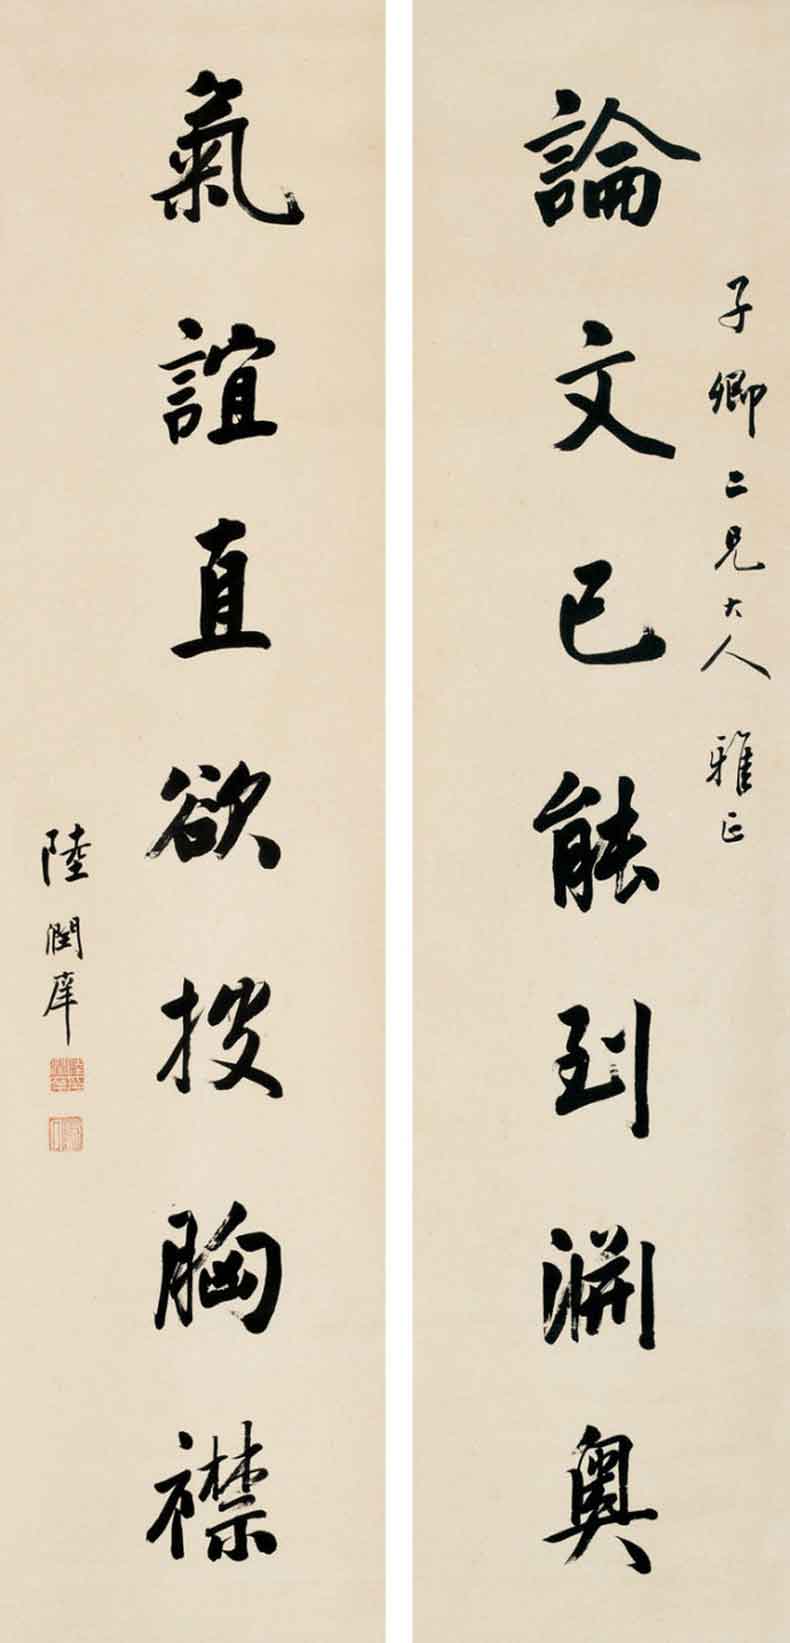 子卿二兄大人 雅正
論文已能到淵奧
氣誼直欲披胸襟
陸潤庠